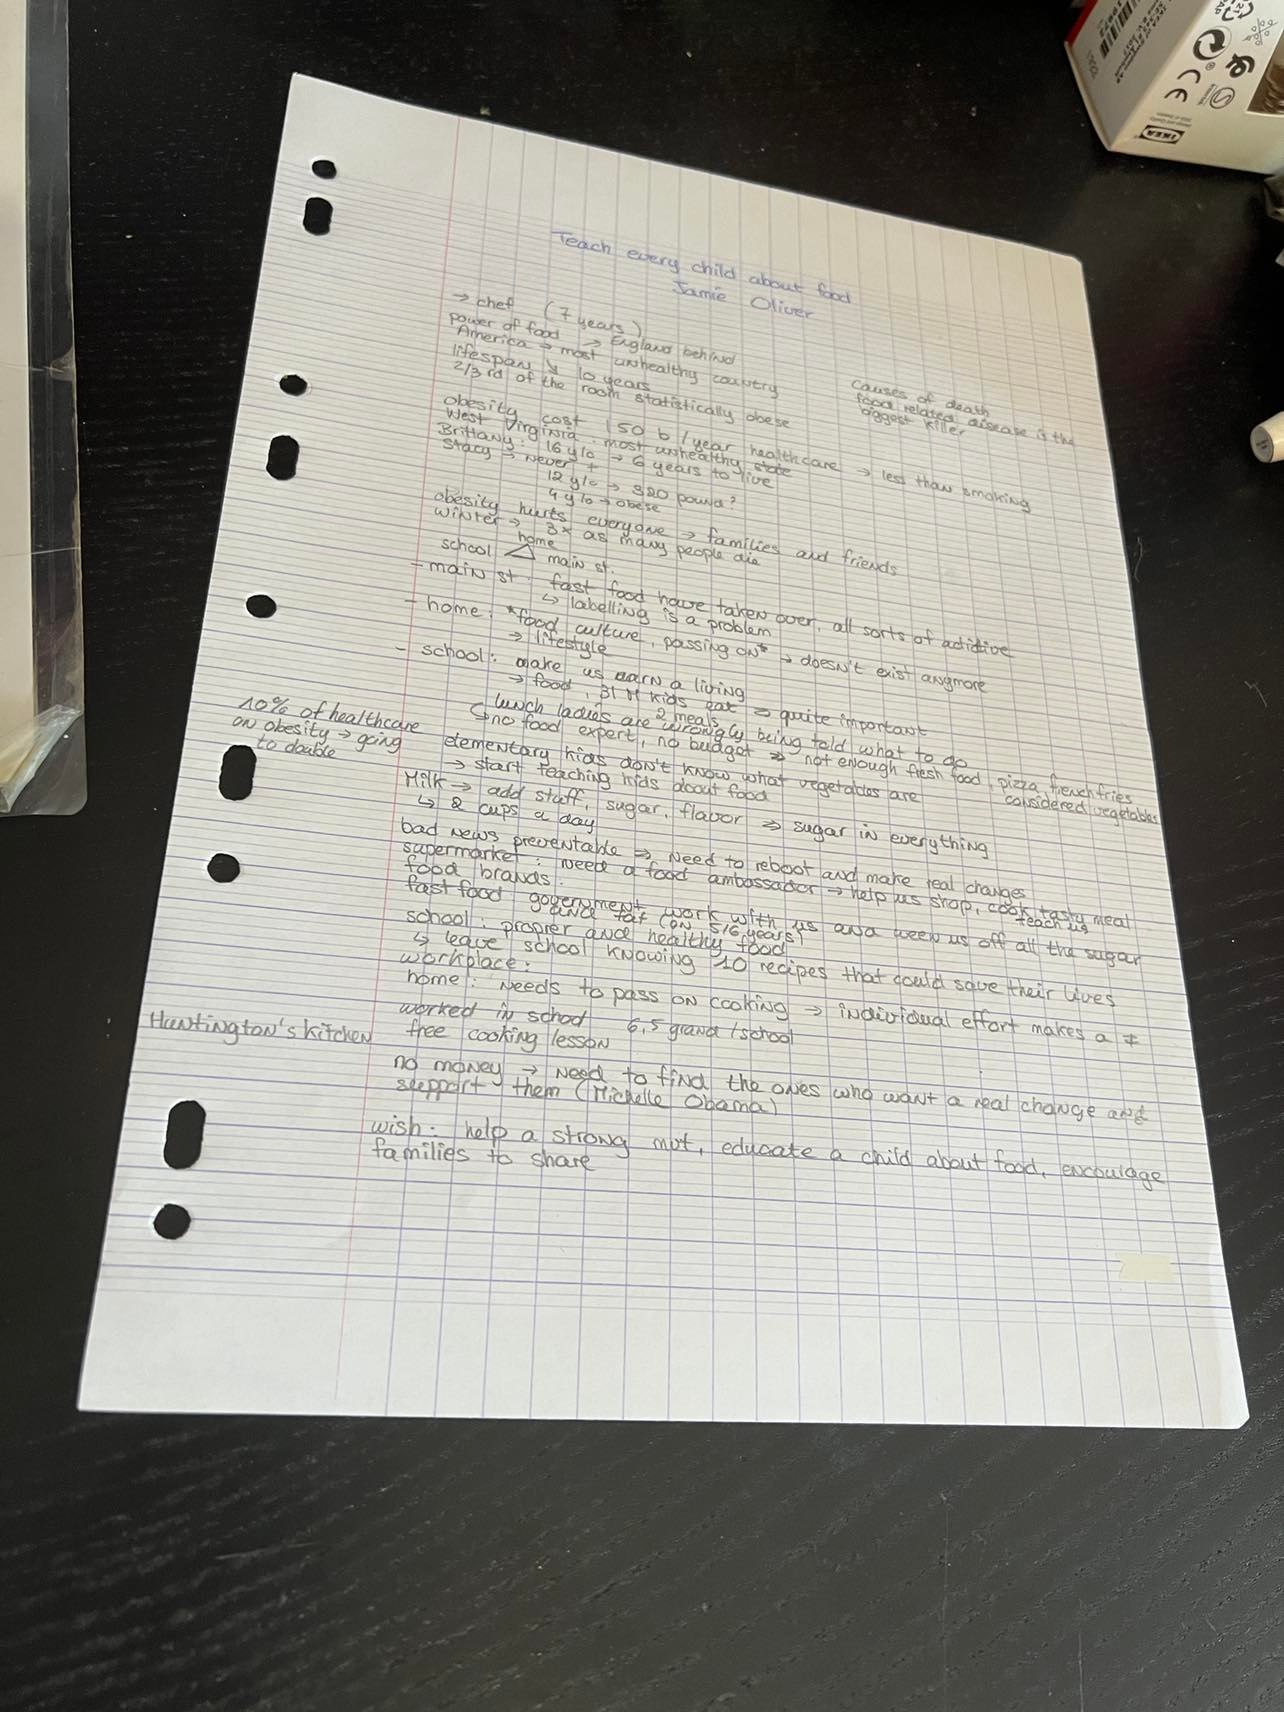 Teach every child about food
Jamie Oliver
→ chef (7 years)
power of food → England behind
America → most unhealthy country
lifespan ↘ 10 years
2/3 rd of the room statistically obese
causes of death
food related disease is the
biggest killer
obesity cost 150 b / year healthcare → less than smoking
West Virginia : most unhealthy state
Brittany : 16 y/o → 6 years to live
Stacy → never +
12 y/o → 320 pound?
4 y/o → obese
obesity hurts everyone → families and friends
winter → 3x as many people die
home
school △ main st.
- main st. fast food have taken over, all sorts of
↳ labelling is a problem
- home : *food culture, passing on* → doesn't exist anymore
→ lifestyle
- school : make us earn a living
→ food, 31 M kids eat ⇒ quite important
2 meals
lunch ladies are wrongly being told what to do
↳ no food expert, no budget ⇒ not enough fresh food, pizza, french fries
considered vegetables
10% of healthcare
on obesity → going
to double
elementary kids don't know what vegetables are
→ start teaching kids about food
Milk → add stuff, sugar, flavor ⇒ sugar in everything
↳ 2 cups a day
bad news preventable ⇒ need to reboot and make real changes
supermarket : need a food ambassador → help us shop, cook tasty meal
teach us
food brands :
fast food government work with us and ween us off all the sugar
and fat (on 5/6 years)
school : proper and healthy food
↳ leave school knowing 10 recipes that could save their lives
workplace :
home : needs to pass on cooking → individual effort makes a ≠
worked in school 6,5 grand / school
Huntington's kitchen free cooking lesson
no money → need to find the ones who want a real change and
support them (Michelle Obama)
wish : help a strong mvt, educate a child about food, encourage
families to share
IKEA
CE